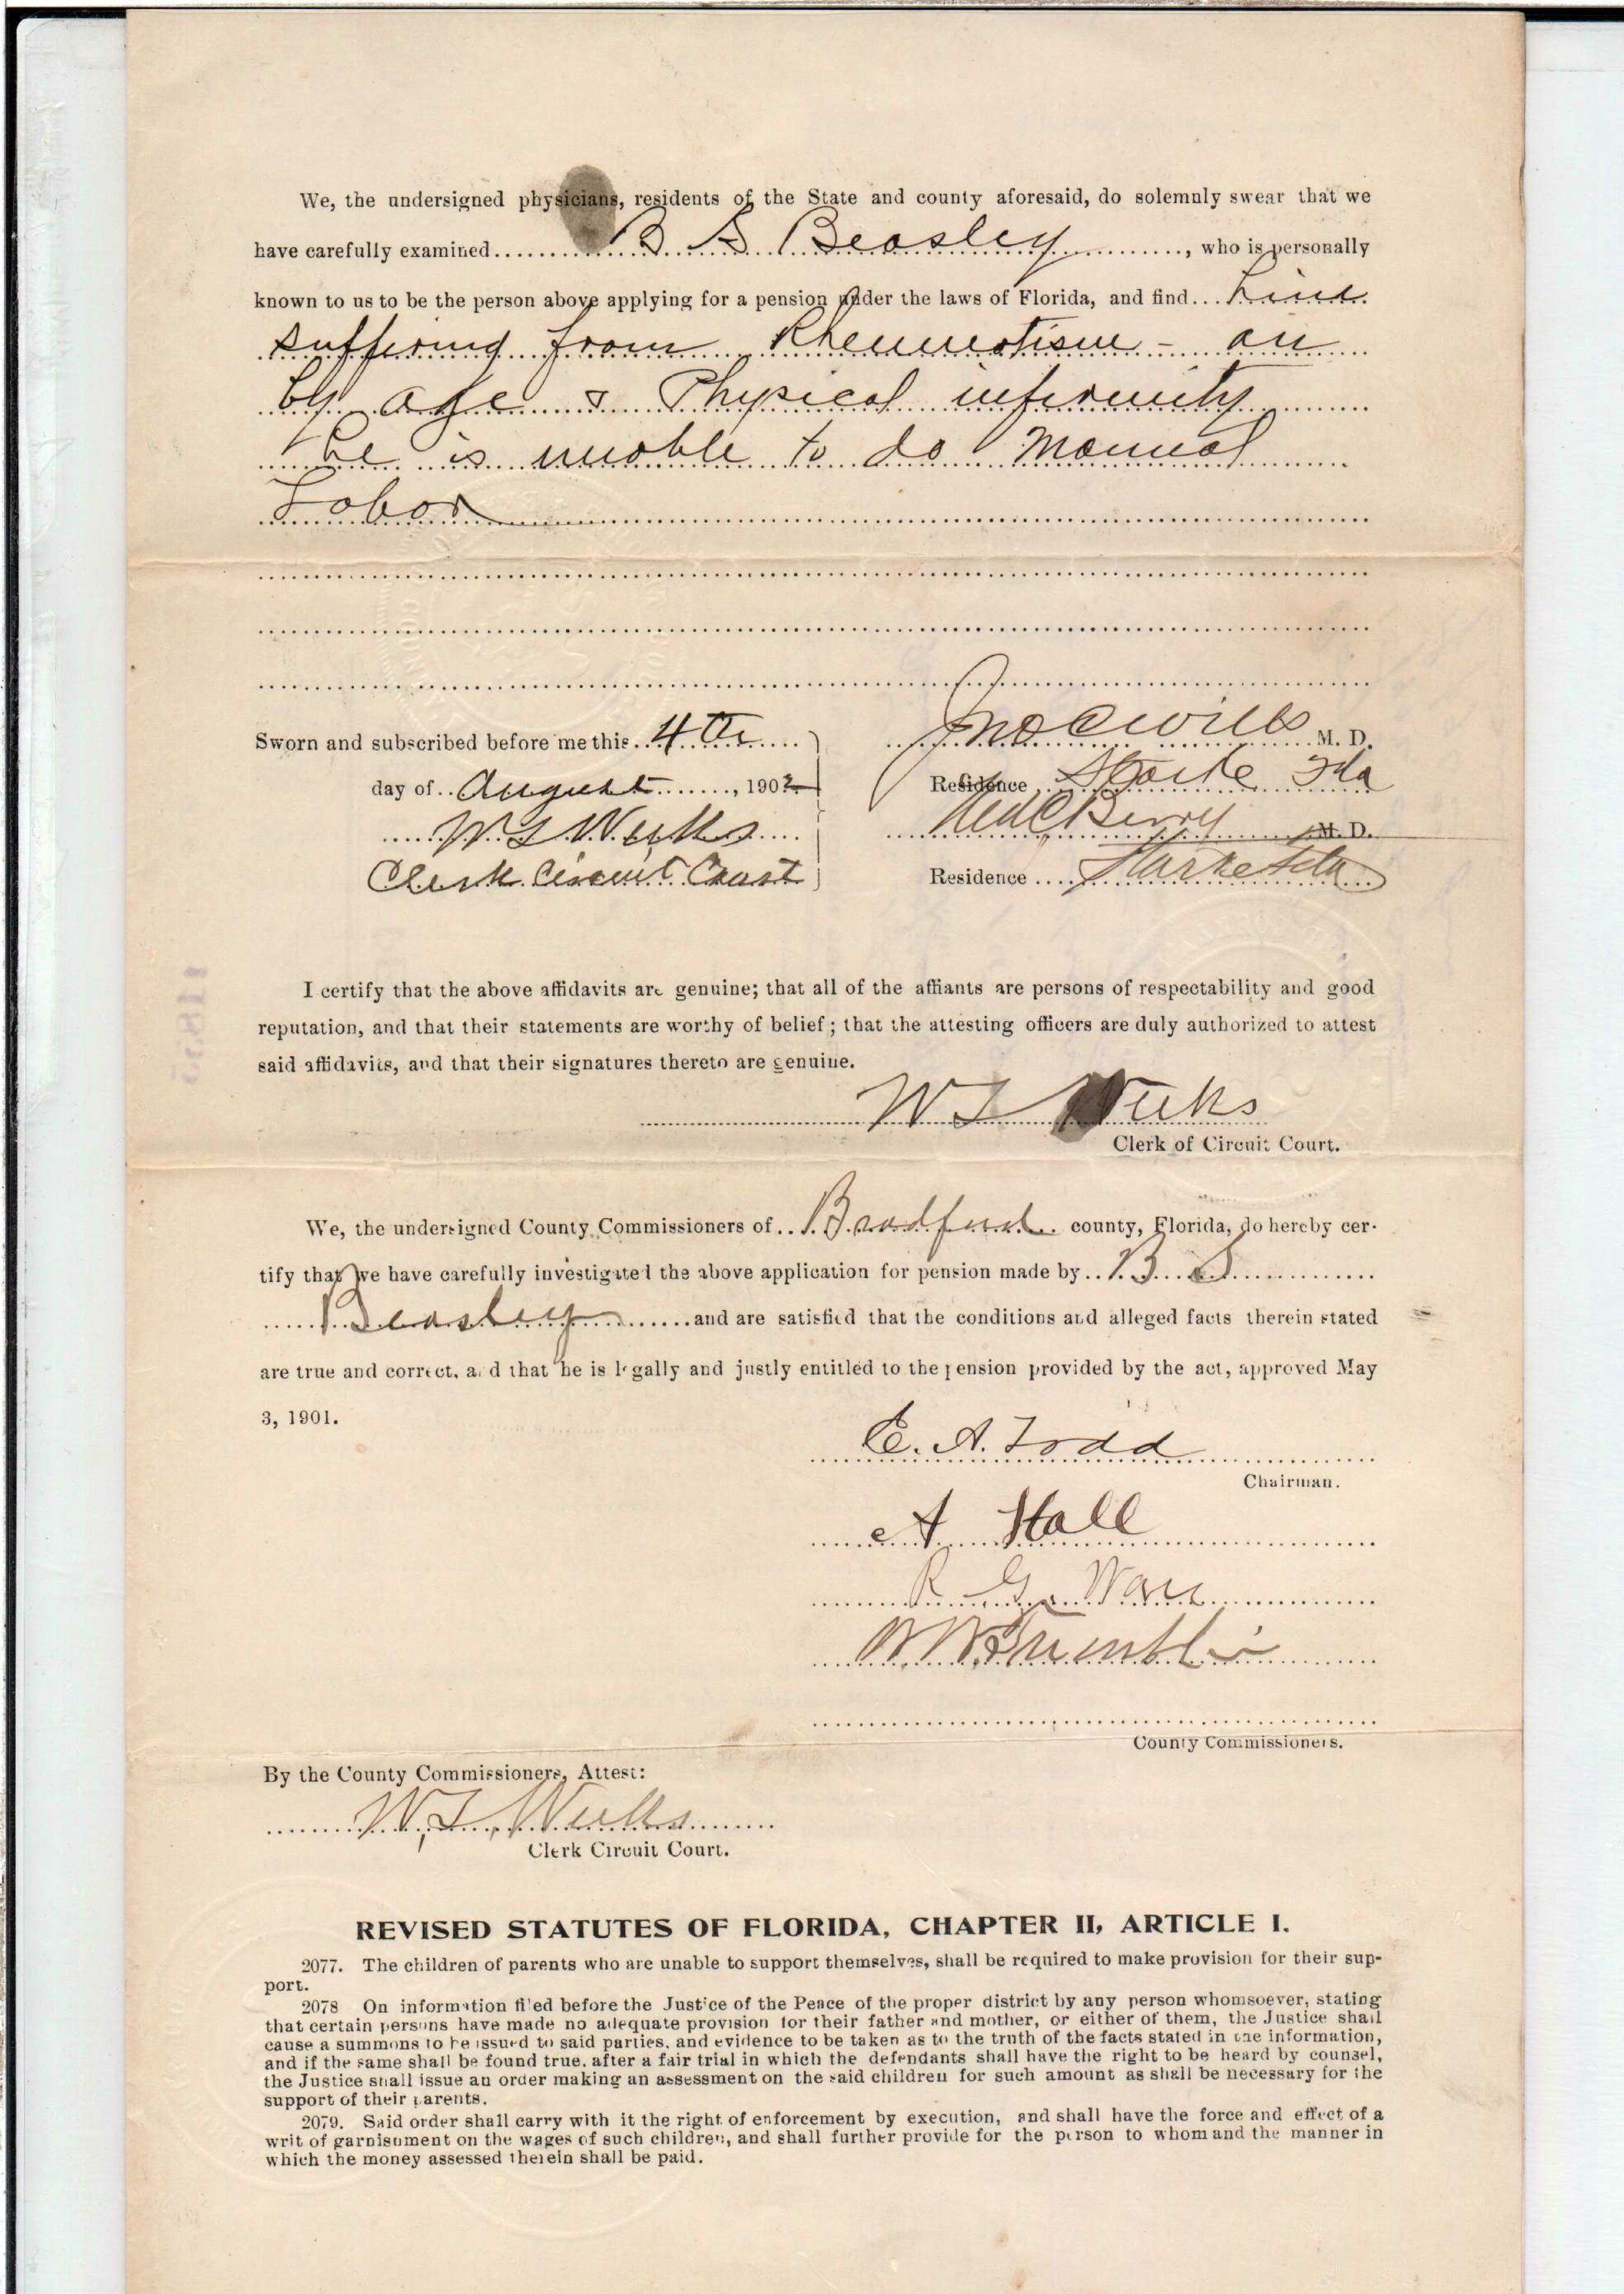 We, the undersigned physicians, residents of the State and county aforesaid, do solemnly swear that we
have carefully examined B S Beasley, who is personally
known to us to be the person above applying for a pension under the laws of Florida, and find him
suffering from Rheumatism - an
by age & Physical infirmity
he is unable to do Manual
Labor
Sworn and subscribed before me this 4th
day of August, 1902
W I Weeks
Clerk Circuit Court
Jno C Wills M. D.
Residence Starke Fla
C Berry M. D.
Residence Starke Fla
I certify that the above affidavits are genuine; that all of the affiants are persons of respectability and good
reputation, and that their statements are worthy of belief; that the attesting officers are duly authorized to attest
said affidavits, and that their signatures thereto are genuine.
W I Weeks
Clerk of Circuit Court.
We, the undersigned County Commissioners of Bradford county, Florida, do hereby cer-
tify that we have carefully investigated the above application for pension made by B S
Beasley and are satisfied that the conditions and alleged facts therein stated
are true and correct, and that he is legally and justly entitled to the pension provided by the act, approved May
3, 1901.
E. A. Todd
Chairman.
A Hall
R. G.
County Commissioners.
By the County Commissioners, Attest:
W. I. Weeks
Clerk Circuit Court.
REVISED STATUTES OF FLORIDA, CHAPTER II, ARTICLE I.
2077. The children of parents who are unable to support themselves, shall be required to make provision for their sup-
port.
2078 On information filed before the Justice of the Peace of the proper district by any person whomsoever, stating
that certain persons have made no adequate provision for their father and mother, or either of them, the Justice shall
cause a summons to be issued to said parties, and evidence to be taken as to the truth of the facts stated in the information,
and if the same shall be found true, after a fair trial in which the defendants shall have the right to be heard by counsel,
the Justice shall issue an order making an assessment on the said children for such amount as shall be necessary for the
support of their parents.
2079. Said order shall carry with it the right of enforcement by execution, and shall have the force and effect of a
writ of garnishment on the wages of such children, and shall further provide for the person to whom and the manner in
which the money assessed therein shall be paid.